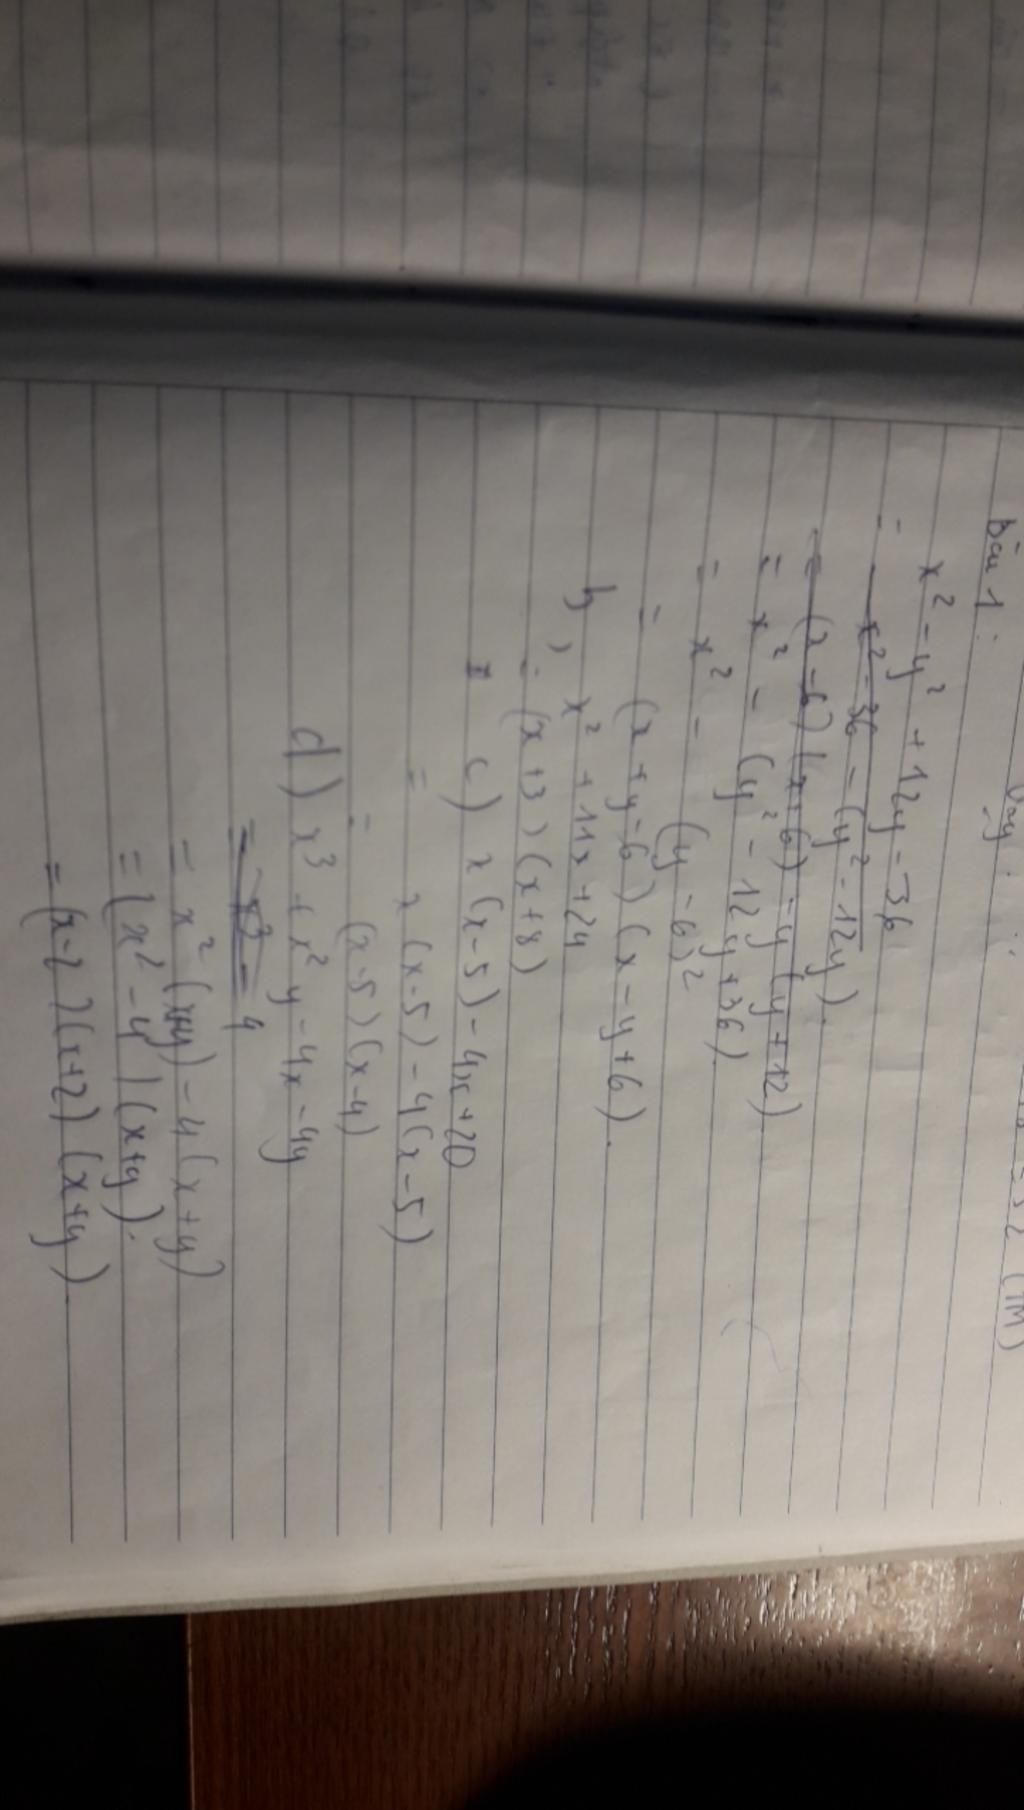 Bài 1:
x² - y² + 12y - 36
= x² - 36 - (y² - 12y).
= (x - 6)(x + 6) - y(y + 12)
= x² - (y² - 12y + 36)
= x² - (y - 6)²
= (x + y - 6)(x - y + 6).
b, x² + 11x + 24
= (x + 3)(x + 8)
c) x(x - 5) - 4x + 20
= x(x - 5) - 4(x - 5)
= (x - 5)(x - 4)
d) x³ + x²y - 4x - 4y
= x²(x + y) - 4(x + y)
= (x² - 4)(x + y).
= (x - 2)(x + 2)(x + y)